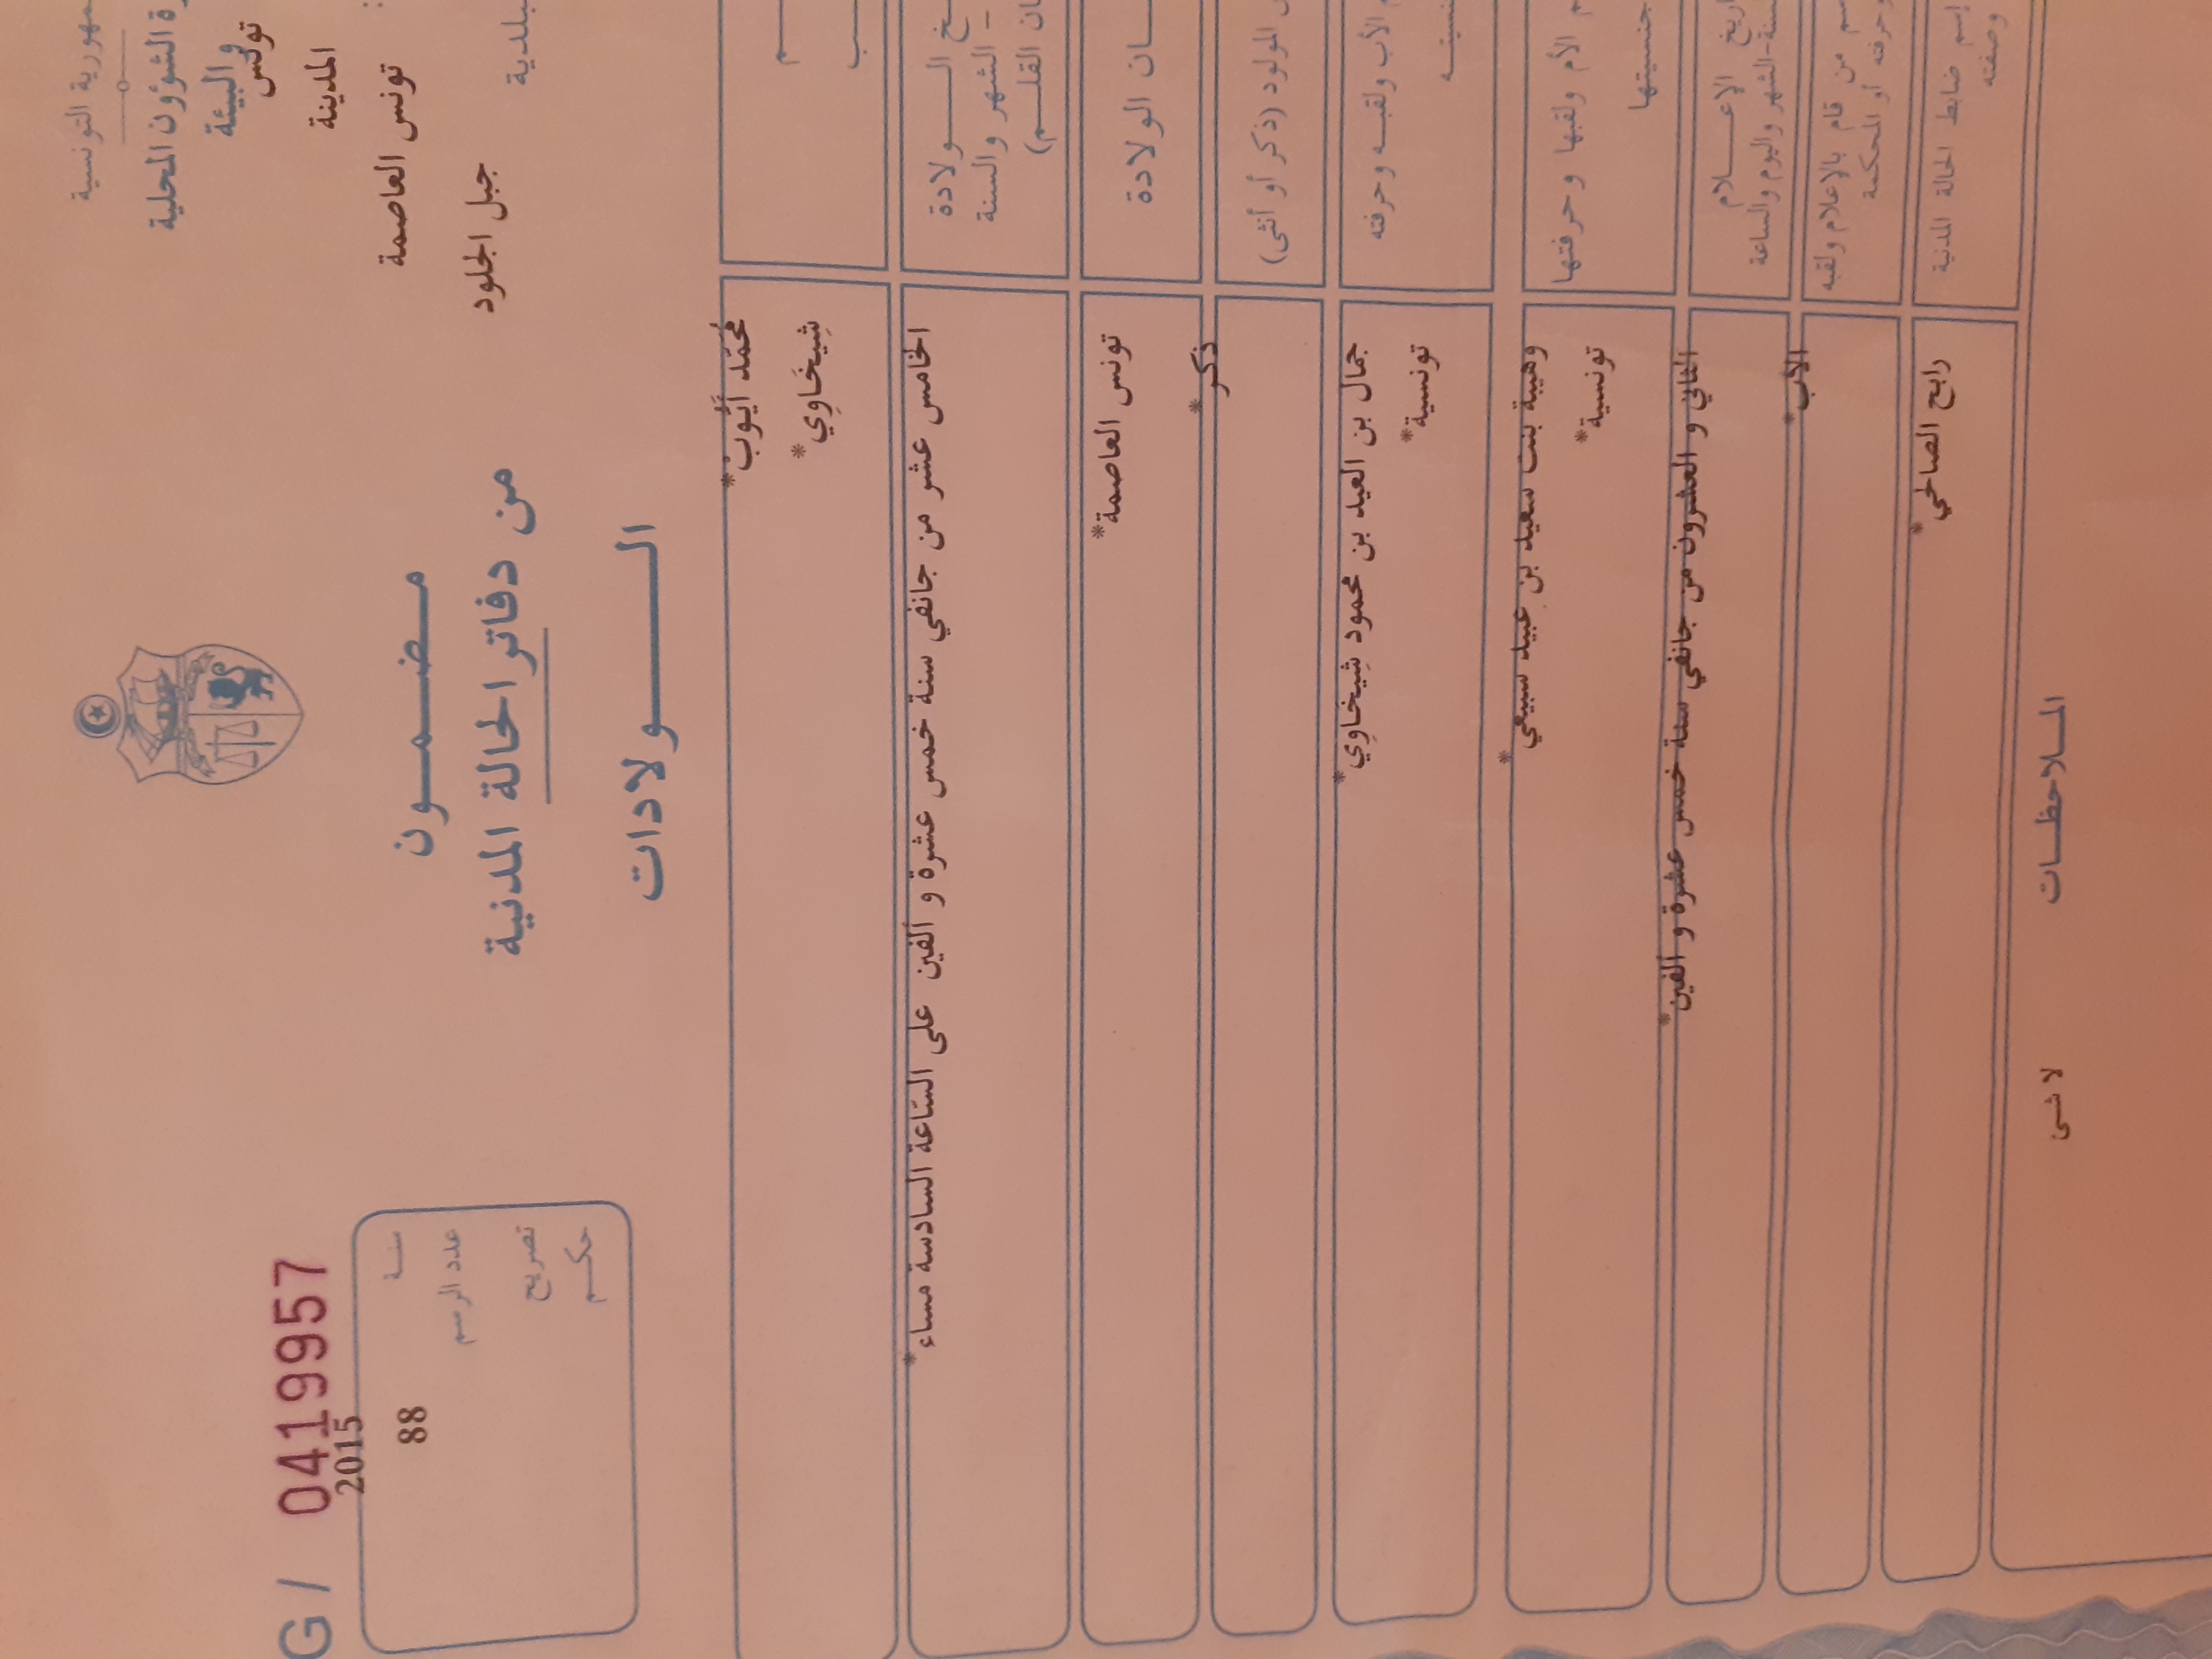 G / 0419957
2015
سنة
88
عدد الرسم
تصريح
حكم
رة الشؤون المحلية
والبيئة
تونس
المدينة
تونس العاصمة
بلدية
جبل الجلود
مضمون
من دفاتر الحالة المدنية
الولادات
مُحَمّد أيّوبْ*
شِيخَاوِي*
الولادة
الشهر والسنة
الخامس عشر من جانفي سنة خمس عشرة و ألفين على السّاعة السادسة مساء*
ان القلم)
ان الولادة
تونس العاصمة*
المولود (ذكر أو أنثى)
ذكر*
م الأب ولقبه وحرفته
جمال بن العيد بن محمود شِيخَاوِي*
تونسية*
م الأم ولقبها وحرفتها
جنسيتها
وهيبة بنت سعيد بن عبيد سبيعي*
تونسية*
اريخ الإعلام
سنة-الشهر واليوم والساعة
الثاني و العشرون من جانفي سنة خمس عشرة و ألفين*
سم من قام بالإعلام ولقبه
وحرفته أو المحكمة
الأب*
إسم ضابط الحالة المدنية
وصفته
رابح الصالحي*
الملاحظات
لا شئ